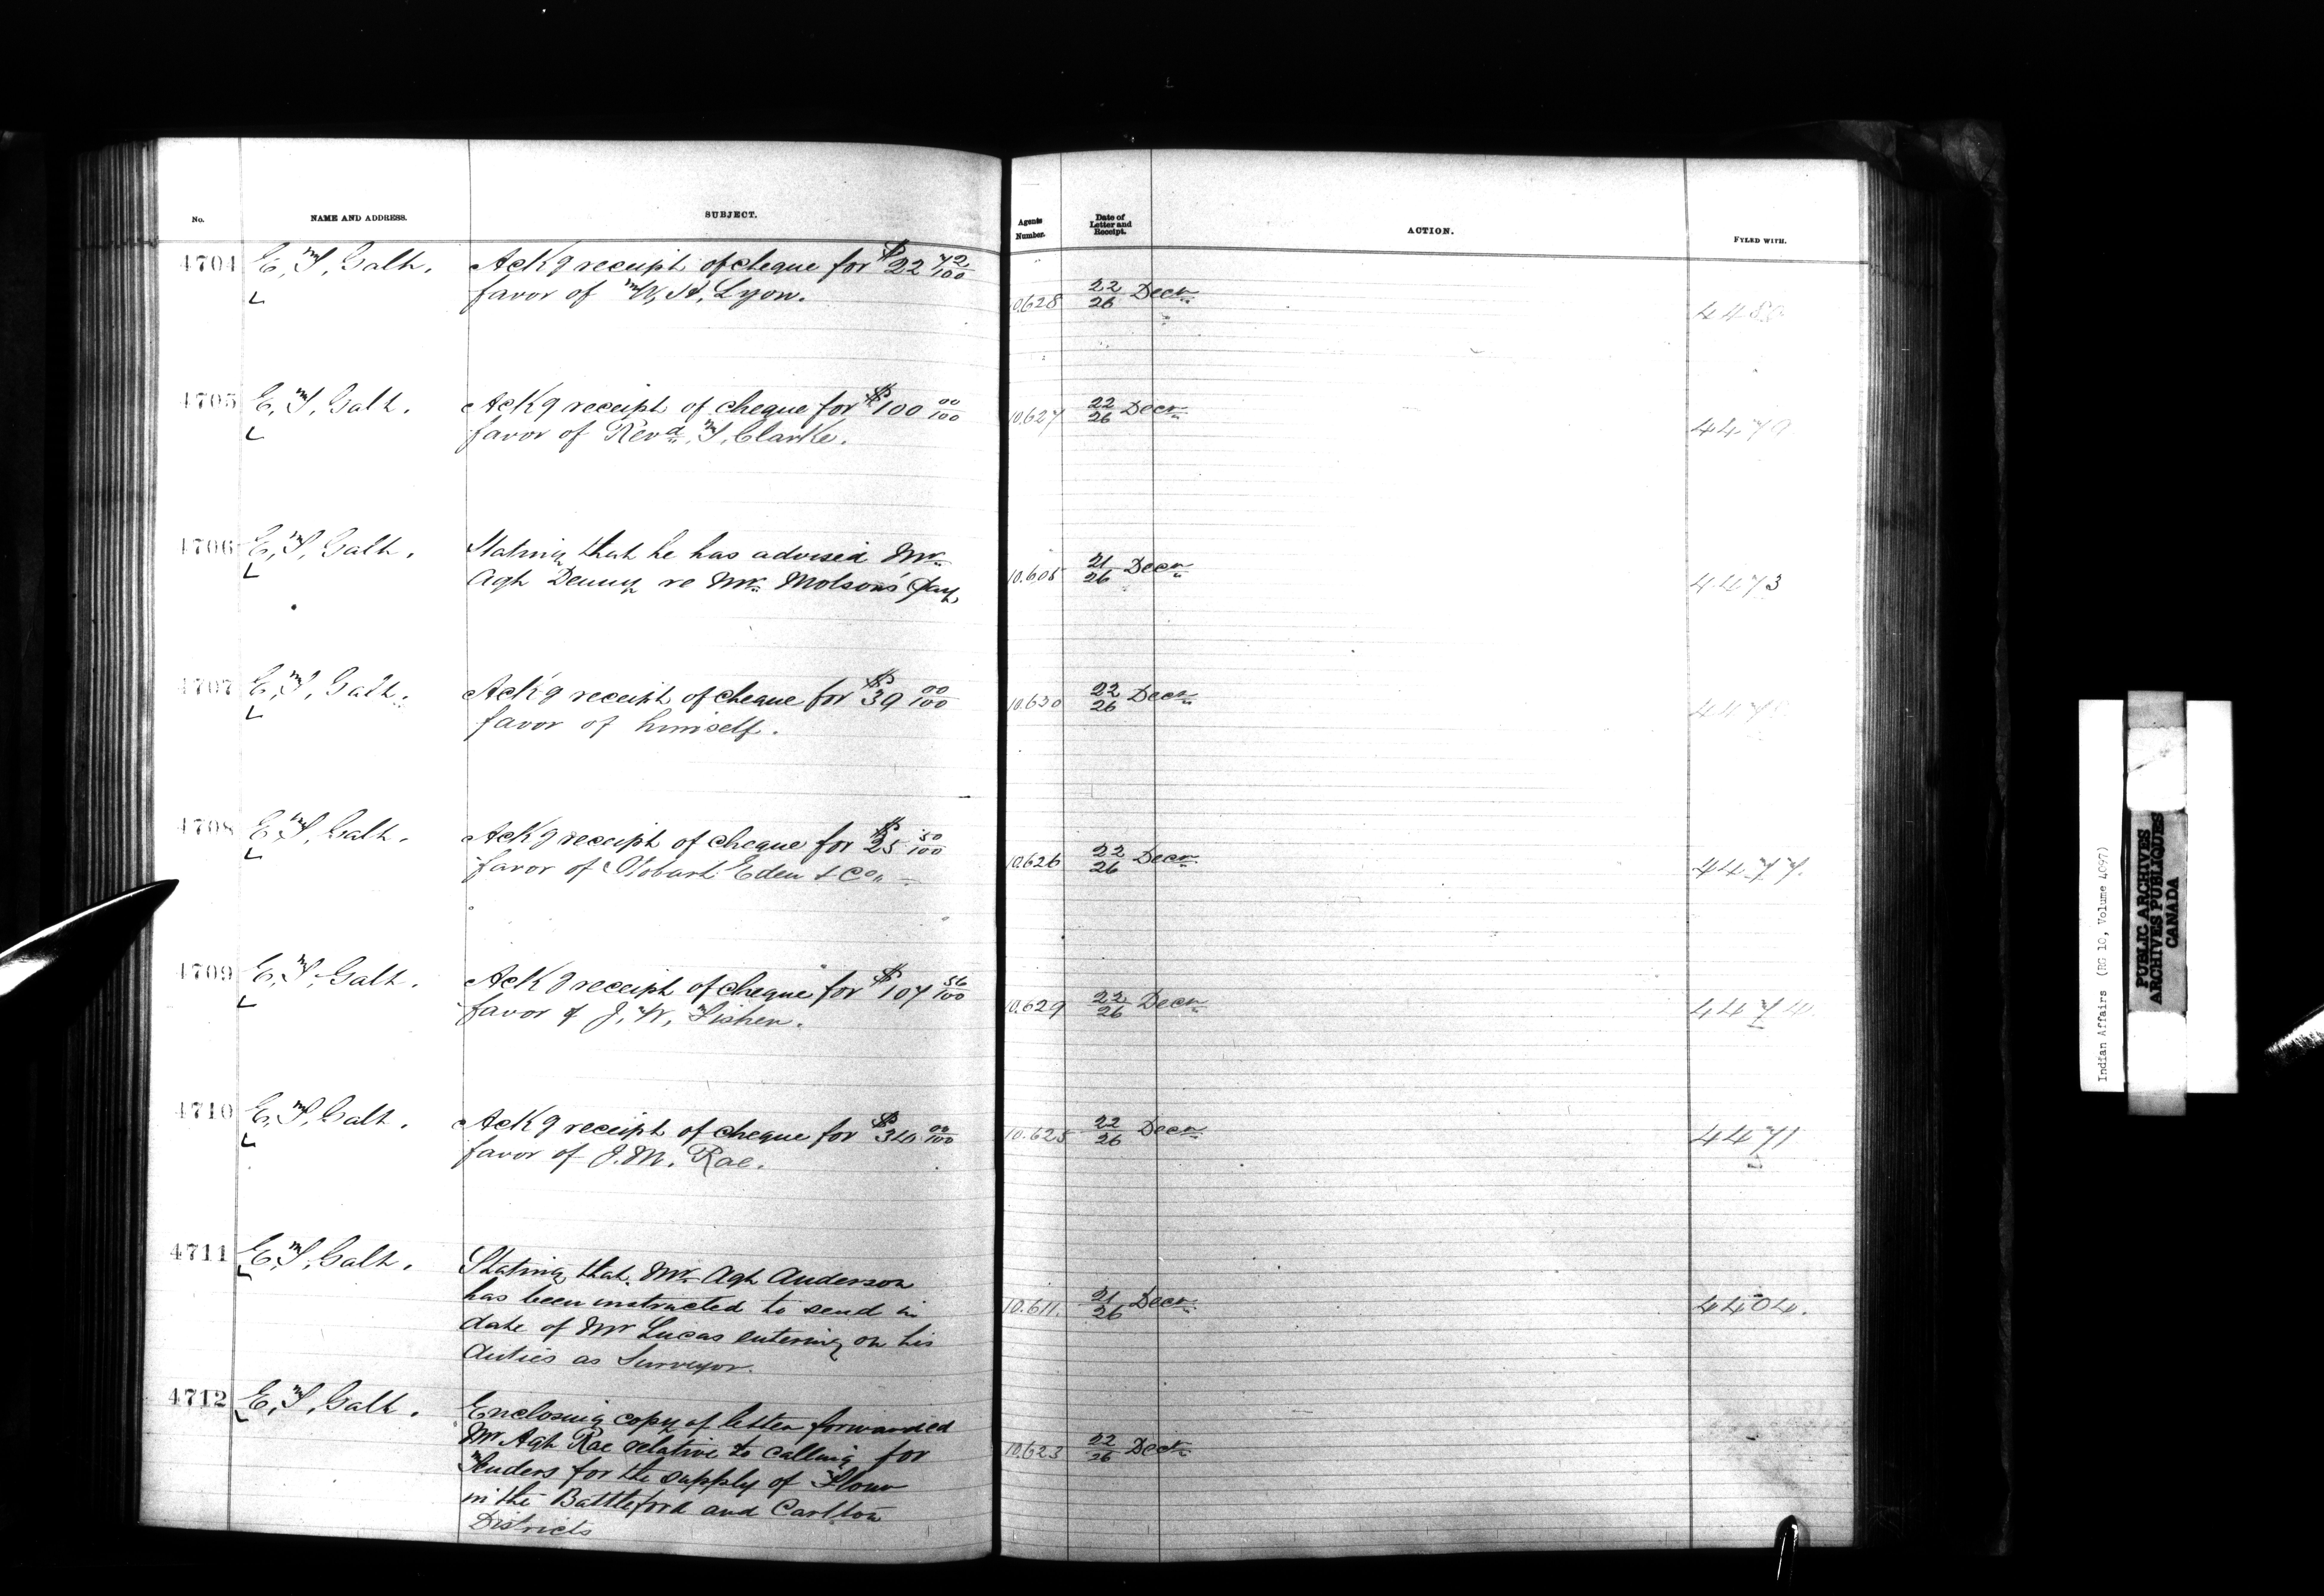 No. NAME AND ADDRESS. SUBJECT. Agents Number. Date of Letter and Receipt. ACTION. FYLED WITH.
4704 E, T, Galt. Ack'g receipt of cheque for $22 42/100
favor of W, H, Lyon. 10.628 22/26 Decr 4480
4705 E, T, Galt. Ack'g receipt of cheque for $100 00/100
favor of Revd, T, Clarke. 10.627 22/26 Decr 4479
4706 E, T, Galt. Stating that he has advised Mr
Agt Denny re Mr Molson's pay 10.608 21/26 Decr 4473
4707 E, T, Galt. Ack'g receipt of cheque for $39 00/100
favor of himself. 10.630 22/26 Decr
4708 E, T, Galt. Ack'g receipt of cheque for $25 50/100
favor of Stobart Eden & Co 10.626 22/26 Decr 4477.
4709 E, T, Galt. Ack'g receipt of cheque for $107 56/100
favor of J, W, Fisher. 10.629 22/26 Decr 4474.
4710 E, T, Galt. Ack'g receipt of cheque for $340 00/100
favor of J. M. Rae. 10.625 22/26 Decr 4471
4711 E, T, Galt. Stating that Mr Agt Anderson
has been instructed to send in
date of Mr Lucas entering on his 10.611. 21/26 Decr 4404.
duties as Surveyor.
4712 E, T, Galt. Enclosing copy of letter forwarded
Mr Agt Rae relative to calling for 10.623 22/26 Decr
Tenders for the supply of Flour
in the Battleford and Carlton
Districts
Indian Affairs (RG 10, Volume 4097)
PUBLIC ARCHIVES
ARCHIVES PUBLIQUES
CANADA